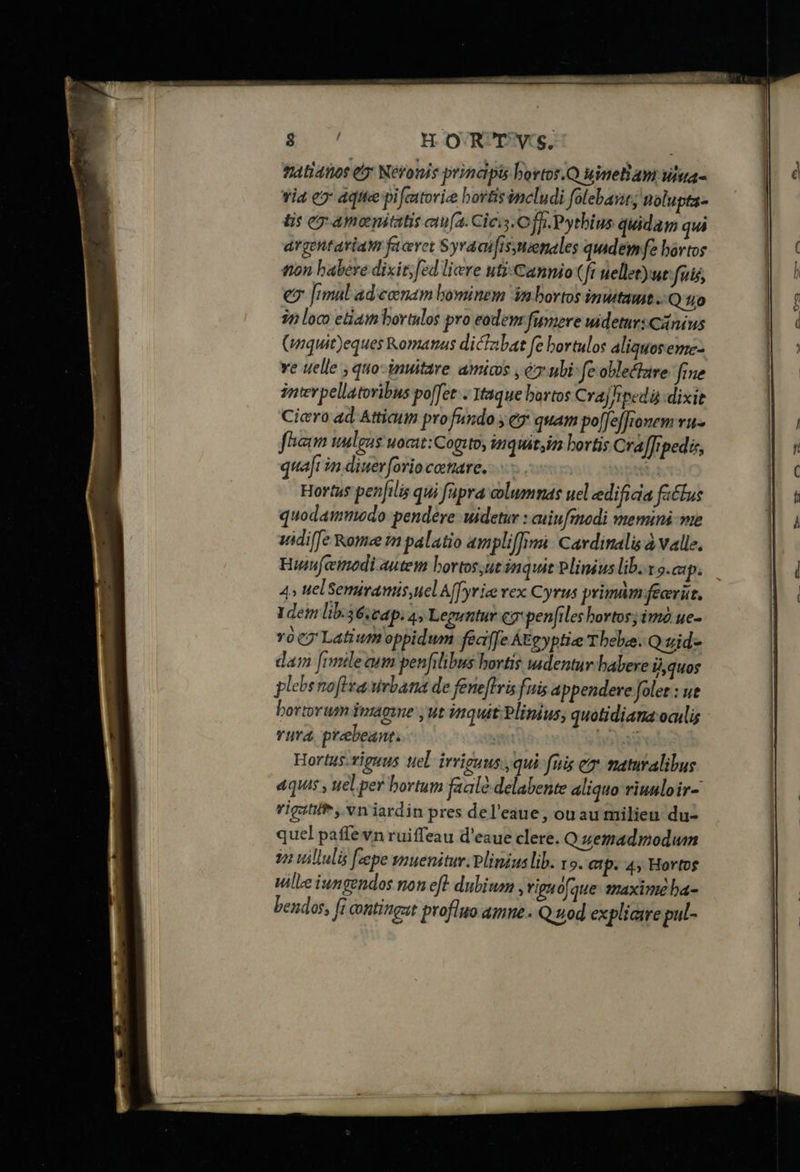 8 HORTVS.
natianos & Neronis principis hortos. Quinetiam uiua-
ria & aquæ piscatoriæ hortis includi solebant, uolupta-
tis & amœnitatis causa. Cic. 3. Offi. Pythius quidam qui
argentariam faceret Syracusis, uænales quidem se hortos
non habere dixit, sed licere uti Cannio (si uellet) ut suis,
& simul ad cœnam hominem in hortos inuitauit. Quo
in loco etiam hortulos pro eodem sumere uidetur: Cānius
(inquit) eques Romanus dictabat se hortulos aliquos eme-
re uelle, quo inuitare amicos, & ubi se oblectare sine
interpellatoribus posset. Itaque hortos Crassipedis dixit
Cicero ad Atticum pro fundo, & quam possessionem ru-
sticam uulgus uocat: Cogito, inquit, in hortis Crassipedis,
quasi in diuersorio cœnare.
Hortus pensilis qui supra columnas uel ædificia factus
quodammodo pendere uidetur: cuiusmodi memini me
uidisse Romæ in palatio amplissimi Cardinalis à Valle.
Huiuscemodi autem hortos, ut inquit Plinius lib. 19. cap.
4, uel Semiramis, uel Assyriæ rex Cyrus primùm fecerūt.
Idem lib. 36. cap. 4, Leguntur & pensiles hortos, imò ue-
rò & Latium oppidum fecisse Ægyptiæ Thebæ. Quid-
dam simile cum pensilibus hortis uidentur habere ij, quos
plebs nostra urbana de fenestris suis appendere solet: ut
hortorum imagine, ut inquit Plinius, quotidiana oculis
rura præbeant.
Hortus riguus uel irriguus, qui suis & naturalibus
aquis, uel per hortum facilè delabente aliquo riuulo ir-
rigatur, vn iardin pres de l'eaue, ou au milieu du-
quel passe vn ruisseau d'eaue clere. Quemadmodum
in uillulis sæpe inuenitur. Plinius lib. 19. cap. 4, Hortos
uillæ iungendos non est dubium, riguósque maximè ha-
bendos, si contingat profluo amne. Quod explicare pul-